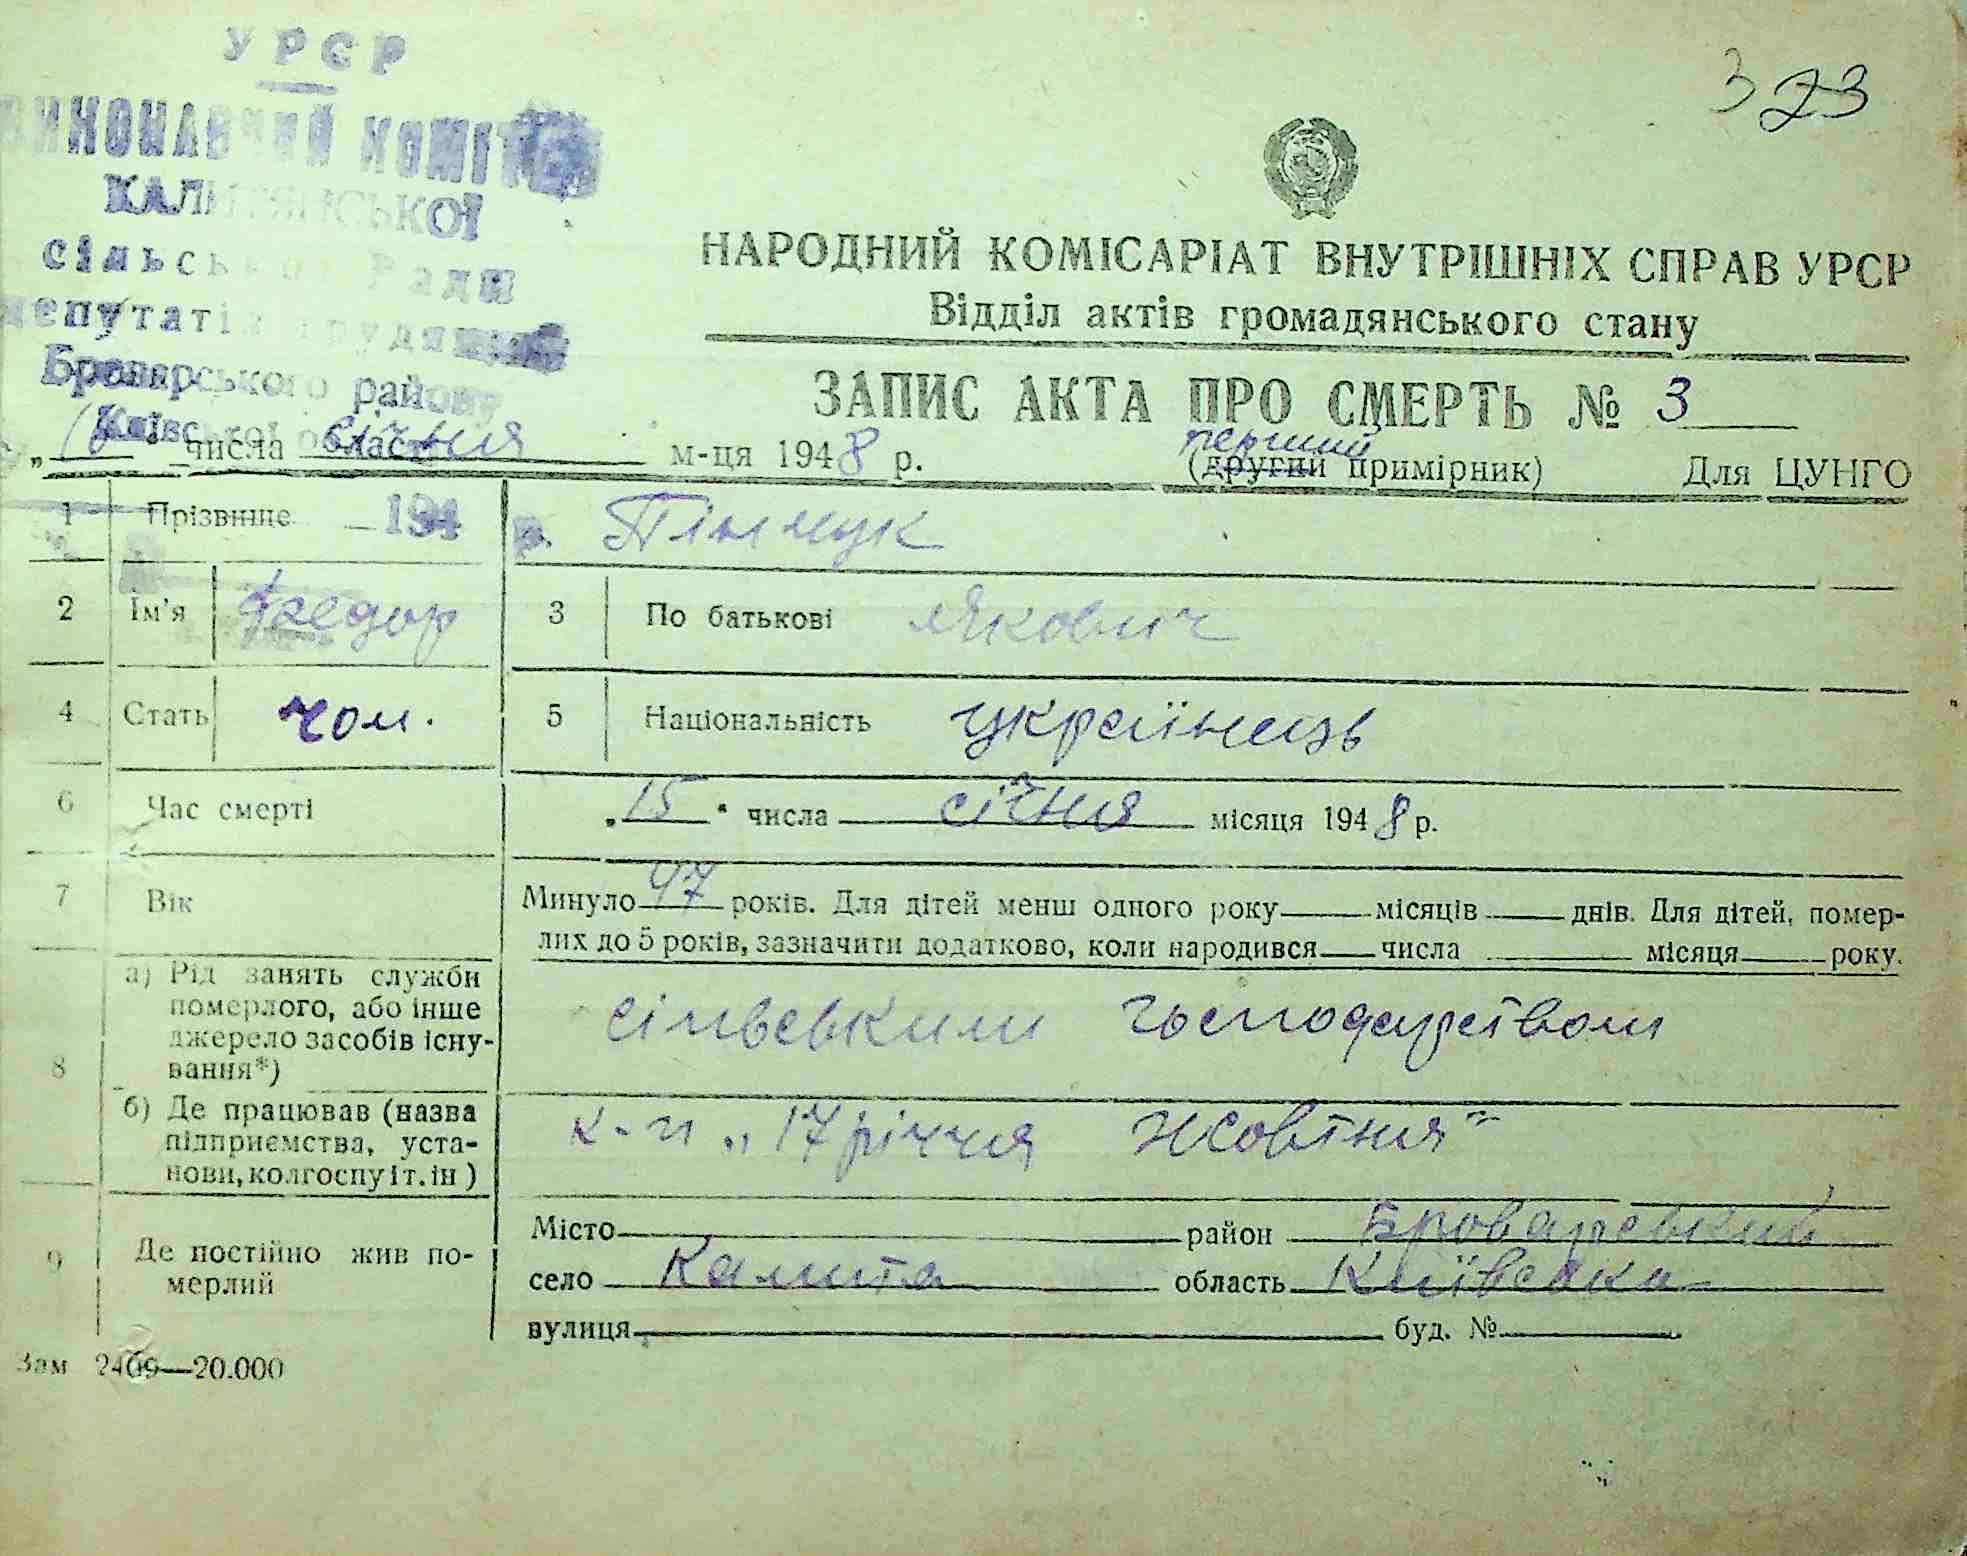 323
УРСР
ВИКОНАВЧИЙ КОМІТЕТ
КАЛИТЯНСЬКОЇ
сільської Ради
депутатів трудящих
Броварського району
Київської області
НАРОДНИЙ КОМІСАРІАТ ВНУТРІШНІХ СПРАВ УРСР
Відділ актів громадянського стану
ЗАПИС АКТА ПРО СМЕРТЬ № 3
„16“ числа січня м-ця 1948 р. перший (другий примірник) Для ЦУНГО
1 Прізвище 194 р. Пінчук
2 Ім'я Федор 3 По батькові Якович
4 Стать чол. 5 Національність українець
6 Час смерті „15“ числа січня місяця 1948 р.
7 Вік Минуло 47 років. Для дітей менш одного року місяців днів. Для дітей, помер-
лих до 5 років, зазначити додатково, коли народився числа місяця року.
8 а) Рід занять служби
померлого, або інше
джерело засобів існу-
вання*)
сільським господарством
б) Де працював (назва
підприємства, уста-
нови, колгоспу і т. ін)
к-п „17 річчя Жовтня"
9 Де постійно жив по-
мерлий
Місто район Броварський
село Калита область Київська
вулиця буд. №
Зам 2409—20.000